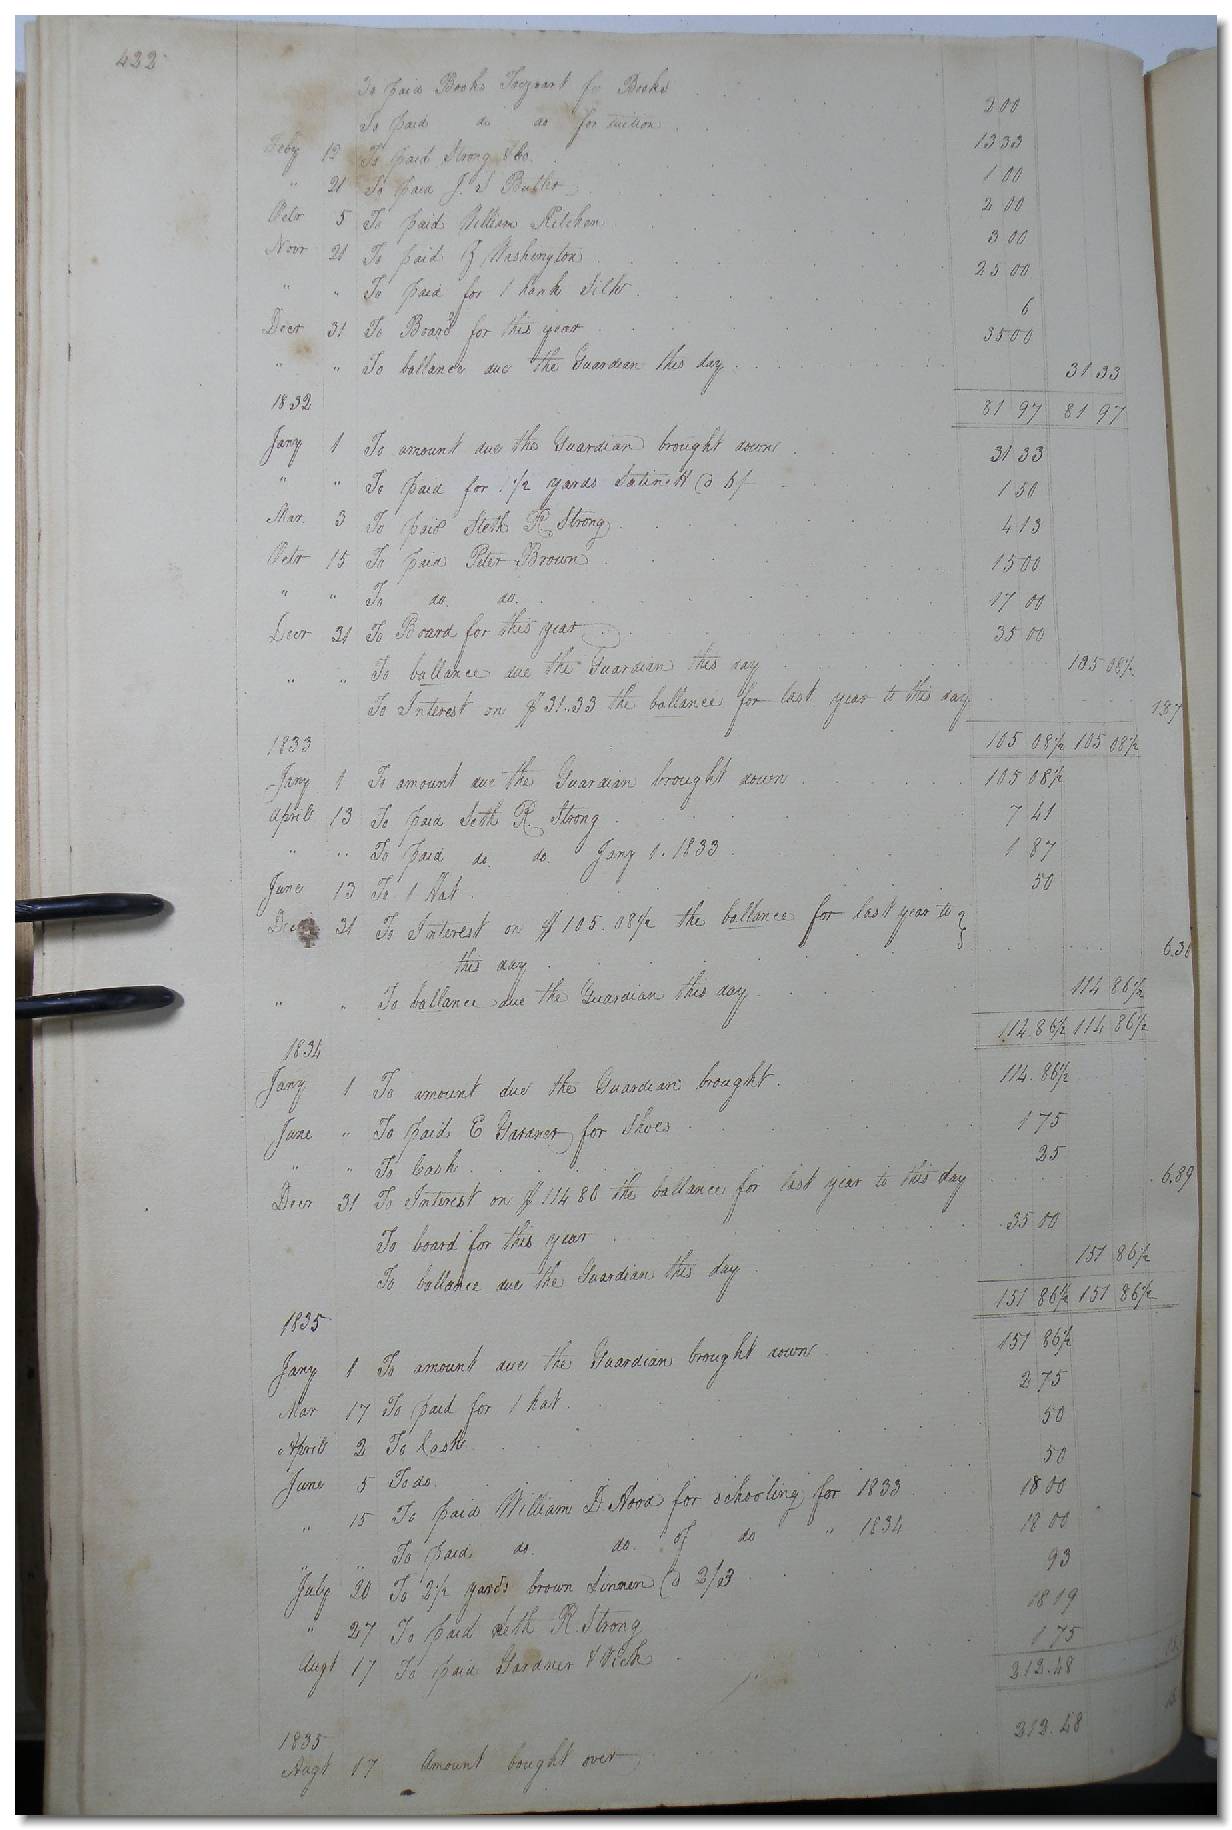 422
To paid Books Toggart for Books 2 00
To paid do do for tuition 13 33
Feby 12 To paid Strong & Co. 1 00
" 21 To paid J. S Butler 2 00
Octr 5 To paid William Kitchen 3 00
Novr 21 To paid J Washington 25 00
" " To paid for 1 hank Silk 6
Decr 31 To Board for this year 35 00
" " To ballance due the Guardian this day 31 33
1832 81 97 81 97
Jany 1 To amount due the Guardian brought down 31 33
" " To paid for 1 1/2 yards Satinett @ 6/ 1 50
Mar. 3 To paid Seth R Strong 4 13
Octr 15 To paid Peter Brown 15 00
" " To do. do. 17 00
Decr 31 To Board for this year 35 00
" " To ballance due the Guardian this day 105 08 1/2
To Interest on $31.33 the ballance for last year to this day 1.87
1833 105 08 1/2 105 08 1/2
Jany 1 To amount due the Guardian brought down 105 08 1/2
April 13 To paid Seth R. Strong 7 41
" " To paid do. do. Jany 1. 1833 1 87
June 13 To 1 Hat 50
Decr 31 To Interest on $105.08 1/2 the ballance for last year to
this day 6.30
" " To ballance due the Guardian this day 114 86 1/2
114.86 1/2 114 86 1/2
1834
Jany 1 To amount due the Guardian brought 114.86 1/2
June " To paid E Gardner for Shoes 1 75
" " To Cash 25
Decr 31 To Interest on $114 86 the ballance for last year to this day 6.89
To board for this year 35 00
To ballance due the Guardian this day 151 86 1/2
151 86 1/2 151 86 1/2
1835
Jany 1 To amount due the Guardian brought down 151 86 1/2
Mar 17 To paid for 1 hat 2 75
April 2 To Cash 50
June 5 To do. 50
" 15 To paid William D Hood for schooling for 1833 18 00
To paid do. do. of do " 1834 18 00
July 20 To 2 1/2 yards brown Linnen @ 2/3 93
" 27 To paid Seth R. Strong 18 19
Augt 17 To paid Gardner & Vick 1 75
212.48
1835
Augt 17 Amount bought over 212.48